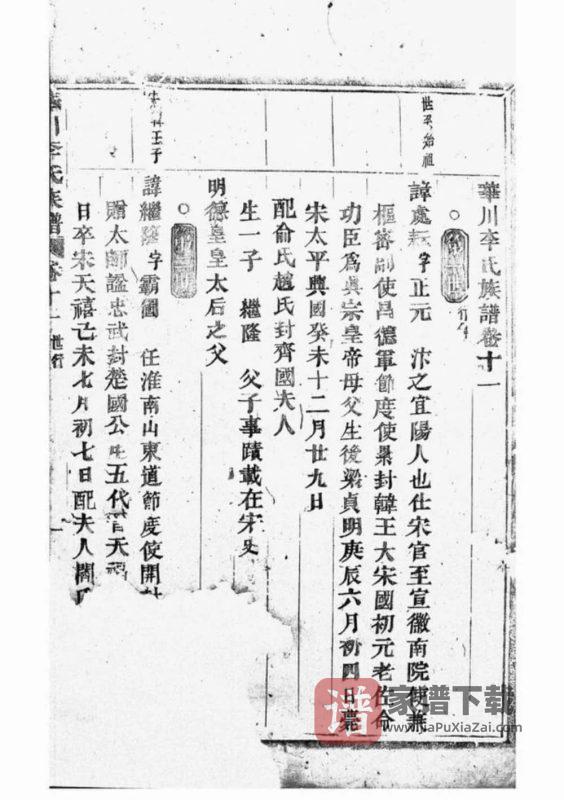 華川李氏族譜卷十一
世系始祖
諱處耘字正元 汴之宜陽人也仕宋官至宣徽南院使兼
樞密副使昌德軍節度使累封韓王大宋國初元老佐命
功臣為真宗皇帝母父生後梁貞明庚辰六月初四日薨
宋太平興國癸未十二月廿九日
配俞氏趙氏封齊國夫人
生一子 繼隆 父子事蹟載在宋史
明德皇皇太后之父
王子
諱繼隆字霸圖 任淮南山東道節度使開
贈太師諡忠武封楚國公生五代晉天福
日卒宋天禧己未七月初七日配夫人
川李氏族譜 卷十一 世行
家谱下载
www.JiaPuXiaZai.com
谱